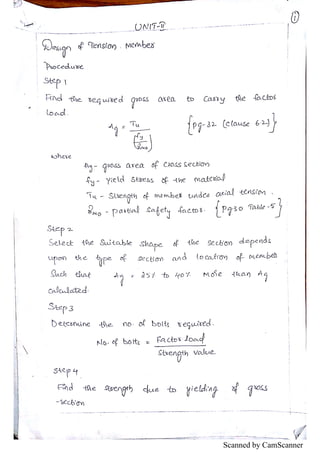 ①
UNIT-II
Design of Tension Member
Procedure
Step 1
Find the required gross area to carry the factor
load.
Ag = Tu / (fy / γmo) {pg-32 (clause 6.2)}
where
Ag - gross area of cross section
fy - yield stress of the material
Tu - Strength of member under axial tension.
γmo - partial safety factor. {pg 30 Table-5}
Step 2
Select the Suitable shape of the section depends
upon the type of section and location of member
Such that Ag = 25% to 40% More than Ag
calculated.
Step 3
Determine the no of bolts required.
No. of bolts = Factor load / Strength value
Step 4
Find the strength due to yielding of gross
-section
Scanned by CamScanner